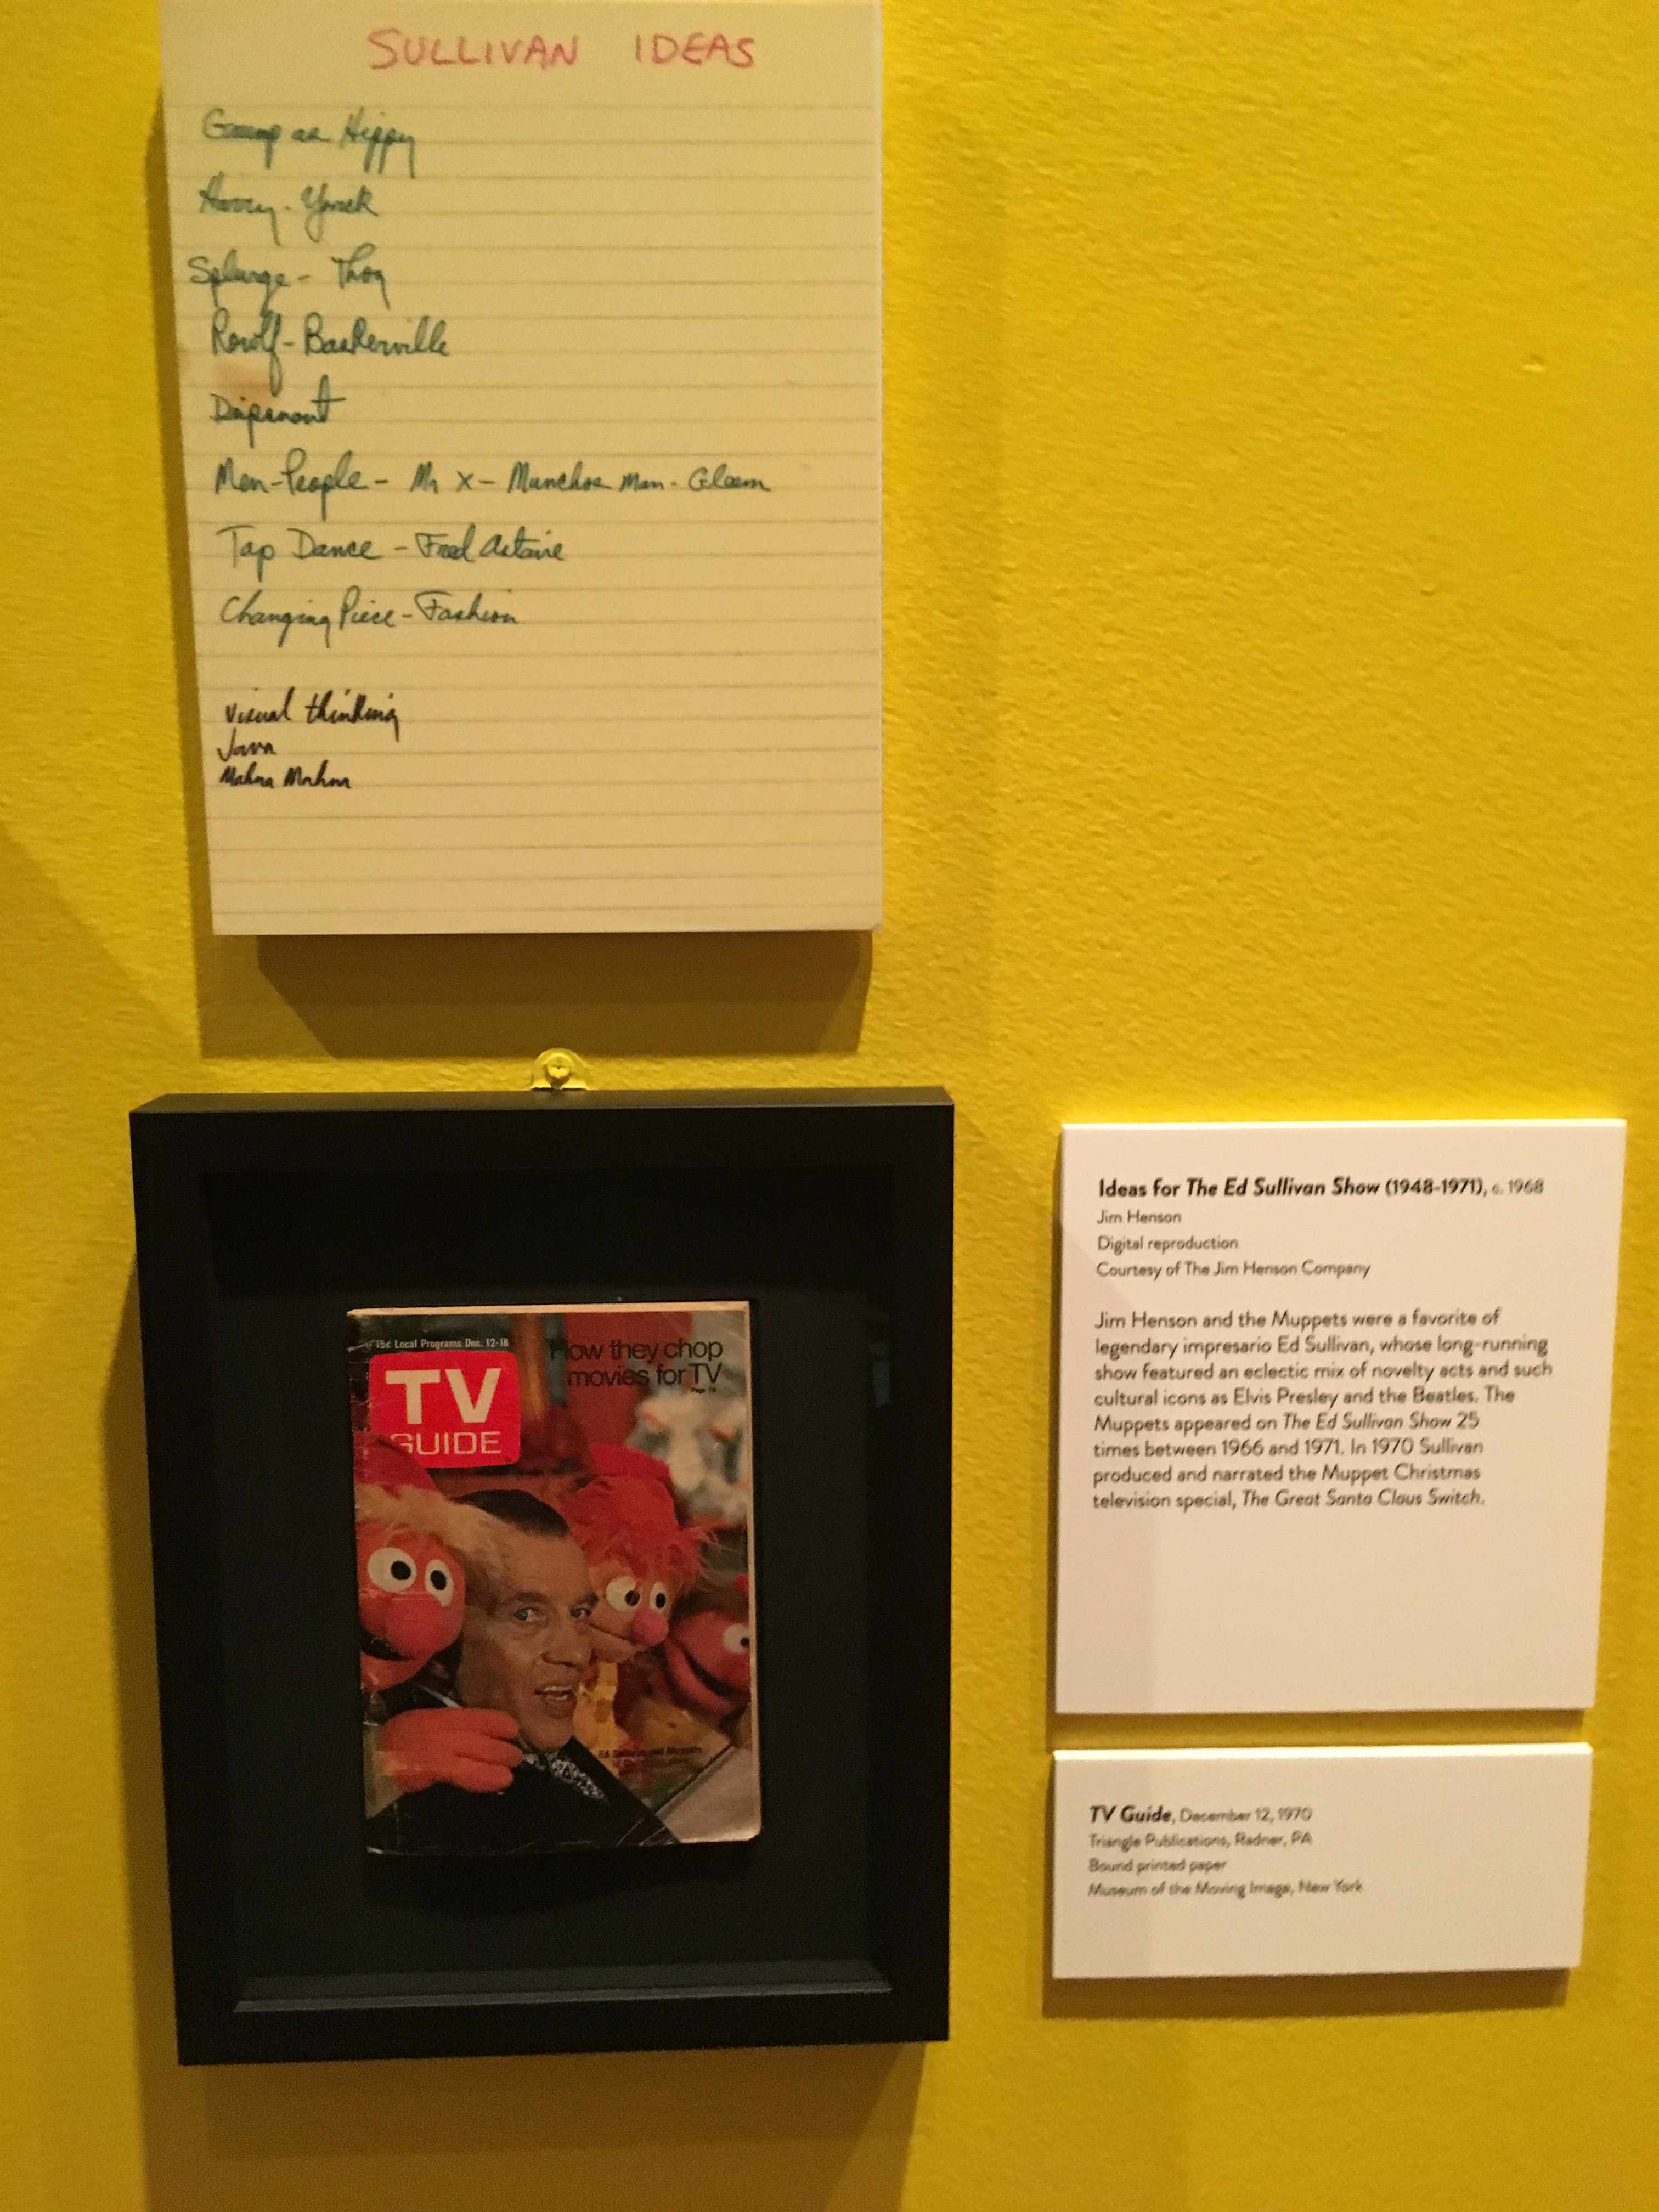 SULLIVAN IDEAS
as Hippy
Harry - Yorick
Splurge - Thog
Rowlf - Baskerville
Men-People - Mr X - Munchos Man - Gleem
Tap Dance - Fred Astaire
Changing Piece - Fashion
Visual thinking
Java
Mahna Mahna
15¢ Local Programs Dec. 12-18
How they chop
movies for TV
TV
GUIDE
Ideas for The Ed Sullivan Show (1948-1971), c. 1968
Jim Henson
Digital reproduction
Courtesy of The Jim Henson Company
Jim Henson and the Muppets were a favorite of
legendary impresario Ed Sullivan, whose long-running
show featured an eclectic mix of novelty acts and such
cultural icons as Elvis Presley and the Beatles. The
Muppets appeared on The Ed Sullivan Show 25
times between 1966 and 1971. In 1970 Sullivan
produced and narrated the Muppet Christmas
television special, The Great Santa Claus Switch.
TV Guide, December 12, 1970
Triangle Publications, Radner, PA
Bound printed paper
Museum of the Moving Image, New York